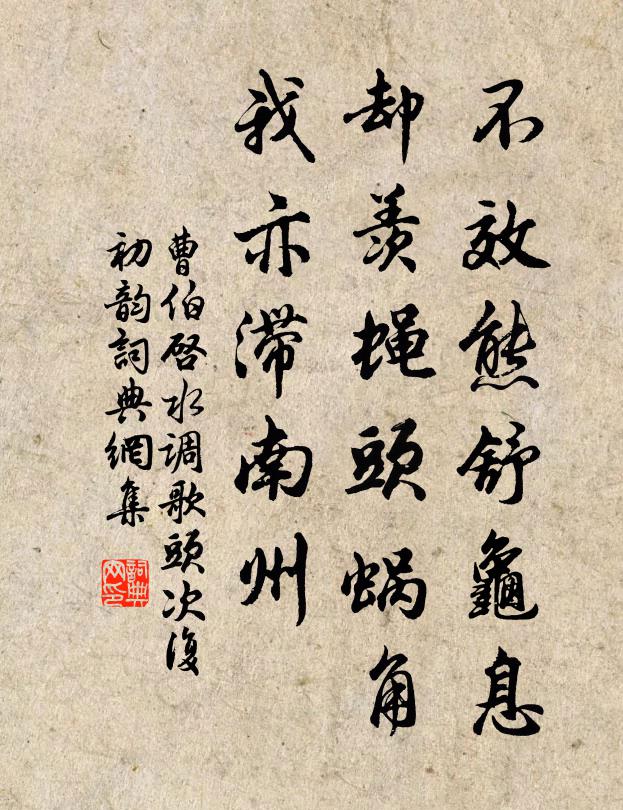 不效熊舒龜息
却羨蝇頭蜗角
我亦滞南州
曹伯啓水調歌頭次復
初韵詞典網集
詞典网印